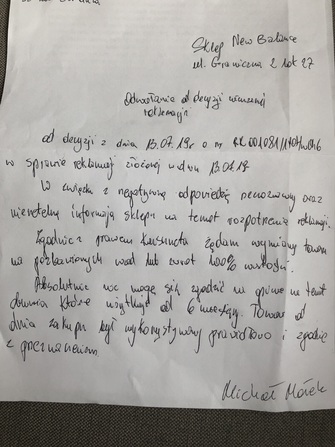 Sklep New Balance
ul. Graniczna 2 lok 27
Odwołanie od decyzji wcześniej
reklamacji
od decyzji z dnia 13.07.19r o nr
w sprawie reklamacji złożonej w dniu 13.07.19
W związku z negatywną odpowiedzią oraz
nierzetelną informacją sklepu na temat rozpatrzenia reklamacji.
Zgodnie z prawem konsumenta żądam wymiany towaru
na pozbawionych wad lub zwrot 100% wartości.
Absolutnie nie mogę się zgodzić na opinię na temat
obuwia które użytkuję od 6 miesięcy. Towar od
dnia zakupu był wykorzystywany prawidłowo i zgodnie
z przeznaczeniem.
Michał